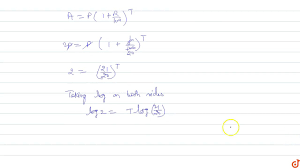 A = P ( 1 + R/100 )^T
2P = P ( 1 + )^T
2 = ( 21/20 )^T
Taking log on both sides
log 2 = T log (21/20)